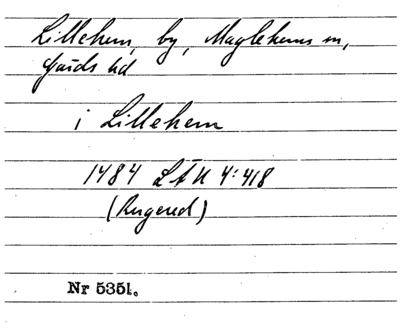 Lillehem, by, Maglehems sn,
Gärds hd
i Lillehem
1484 LÅU 4:418
(Rugerud)
Nr 5351.